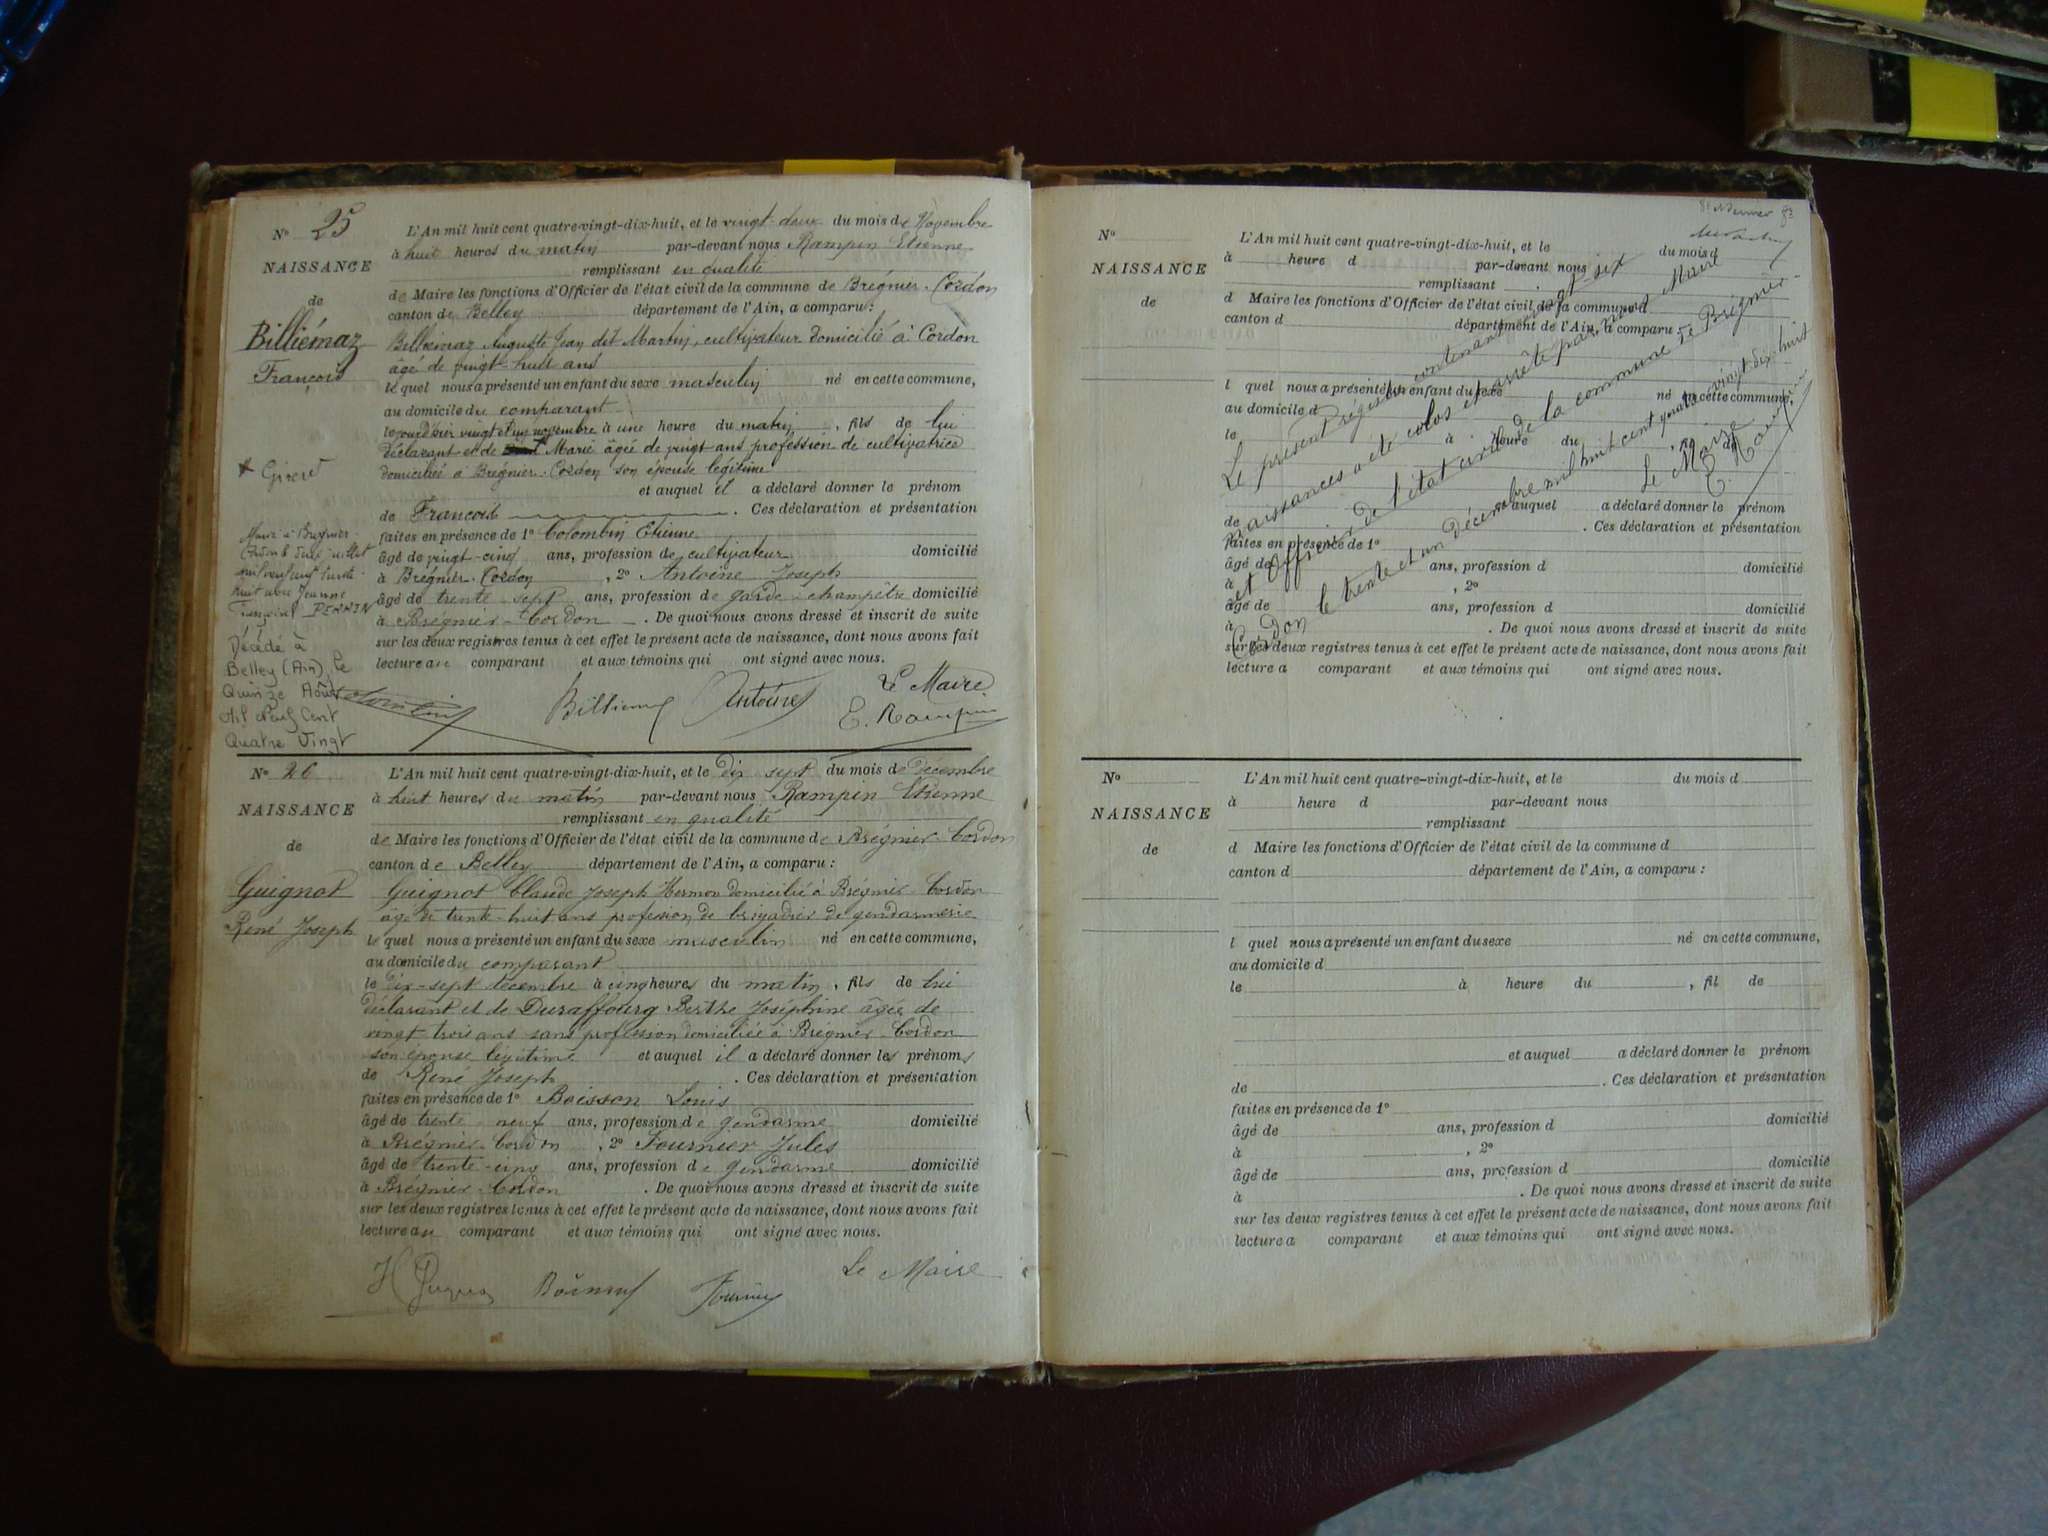 N° 25
NAISSANCE
de
Billiémaz
François
L'An mil huit cent quatre-vingt-dix-huit, et le vingt deux du mois de Novembre
à huit heures du matin par-devant nous Rampin Etienne
remplissant en qualité
de Maire les fonctions d'Officier de l'état civil de la commune de Brégnier-Cordon
canton de Belley département de l'Ain, a comparu :
Billiémaz Auguste Jean dit Martin, cultivateur domicilié à Cordon
âgé de vingt-huit ans
le quel nous a présenté un enfant du sexe masculin né en cette commune,
au domicile du comparant
le vingt et un novembre à une heure du matin, fils de lui
Déclarant et de Marie âgée de vingt ans profession de cultivatrice
domiciliée à Brégnier-Cordon son épouse légitime
et auquel il a déclaré donner le prénom
de François. Ces déclaration et présentation
faites en présence de 1° Colombin Etienne
âgé de vingt-cinq ans, profession de cultivateur domicilié
à Brégnier-Cordon, 2° Antoine Joseph
âgé de trente-sept ans, profession de garde-champêtre domicilié
à Brégnier-Cordon. De quoi nous avons dressé et inscrit de suite
sur les deux registres tenus à cet effet le présent acte de naissance, dont nous avons fait
lecture au comparant et aux témoins qui ont signé avec nous.
Antoine
Le Maire
E. Rampin
Marié à Brégnier-
Cordon le juillet
mil neuf cent trente-
huit avec Jeanne
PERRIN
Décédé à
Belley (Ain), le
Quinze Août
Mil Neuf Cent
Quatre Vingt
N° 26
NAISSANCE
de
Guignot
René Joseph
L'An mil huit cent quatre-vingt-dix-huit, et le dix sept du mois de décembre
à huit heures du matin par-devant nous Rampin Etienne
remplissant en qualité
de Maire les fonctions d'Officier de l'état civil de la commune de Brégnier-Cordon
canton de Belley département de l'Ain, a comparu :
Guignot Claude Joseph domicilié à Brégnier-Cordon
âgé de trente-huit ans profession de brigadier de gendarmerie
le quel nous a présenté un enfant du sexe masculin né en cette commune,
au domicile du comparant
le dix-sept décembre à cinq heures du matin, fils de lui
déclarant et de Duraffourg Berthe Joséphine âgée de
vingt trois ans sans profession domiciliée à Brégnier-Cordon
son épouse légitime et auquel il a déclaré donner les prénoms
de René Joseph. Ces déclaration et présentation
faites en présence de 1° Boisson Louis
âgé de trente neuf ans, profession de gendarme domicilié
à Brégnier-Cordon, 2° Fournier Jules
âgé de trente-cinq ans, profession de gendarme domicilié
à Brégnier-Cordon. De quoi nous avons dressé et inscrit de suite
sur les deux registres tenus à cet effet le présent acte de naissance, dont nous avons fait
lecture au comparant et aux témoins qui ont signé avec nous.
Fournier
Le Maire
N°
NAISSANCE
de
L'An mil huit cent quatre-vingt-dix-huit, et le du mois d
à heure d par-devant nous
remplissant
d Maire les fonctions d'Officier de l'état civil de la commune d
canton d département de l'Ain, a comparu :
l quel nous a présenté un enfant du sexe né en cette commune,
au domicile d
le à heure du , fil de
et auquel a déclaré donner le prénom
de . Ces déclaration et présentation
faites en présence de 1°
âgé de ans, profession d domicilié
à , 2°
âgé de ans, profession d domicilié
à . De quoi nous avons dressé et inscrit de suite
sur les deux registres tenus à cet effet le présent acte de naissance, dont nous avons fait
lecture a comparant et aux témoins qui ont signé avec nous.
Le présent registre contenant vingt-six
naissances a été clos et arrêté par nous Maire
et Officier de l'état civil de la commune de Brégnier-
Cordon le trente et un Décembre mil huit cent quatre vingt dix huit
Le Maire
E. Rampin
N°
NAISSANCE
de
L'An mil huit cent quatre-vingt-dix-huit, et le du mois d
à heure d par-devant nous
remplissant
d Maire les fonctions d'Officier de l'état civil de la commune d
canton d département de l'Ain, a comparu :
l quel nous a présenté un enfant du sexe né en cette commune,
au domicile d
le à heure du , fil de
et auquel a déclaré donner le prénom
de . Ces déclaration et présentation
faites en présence de 1°
âgé de ans, profession d domicilié
à , 2°
âgé de ans, profession d domicilié
à . De quoi nous avons dressé et inscrit de suite
sur les deux registres tenus à cet effet le présent acte de naissance, dont nous avons fait
lecture a comparant et aux témoins qui ont signé avec nous.